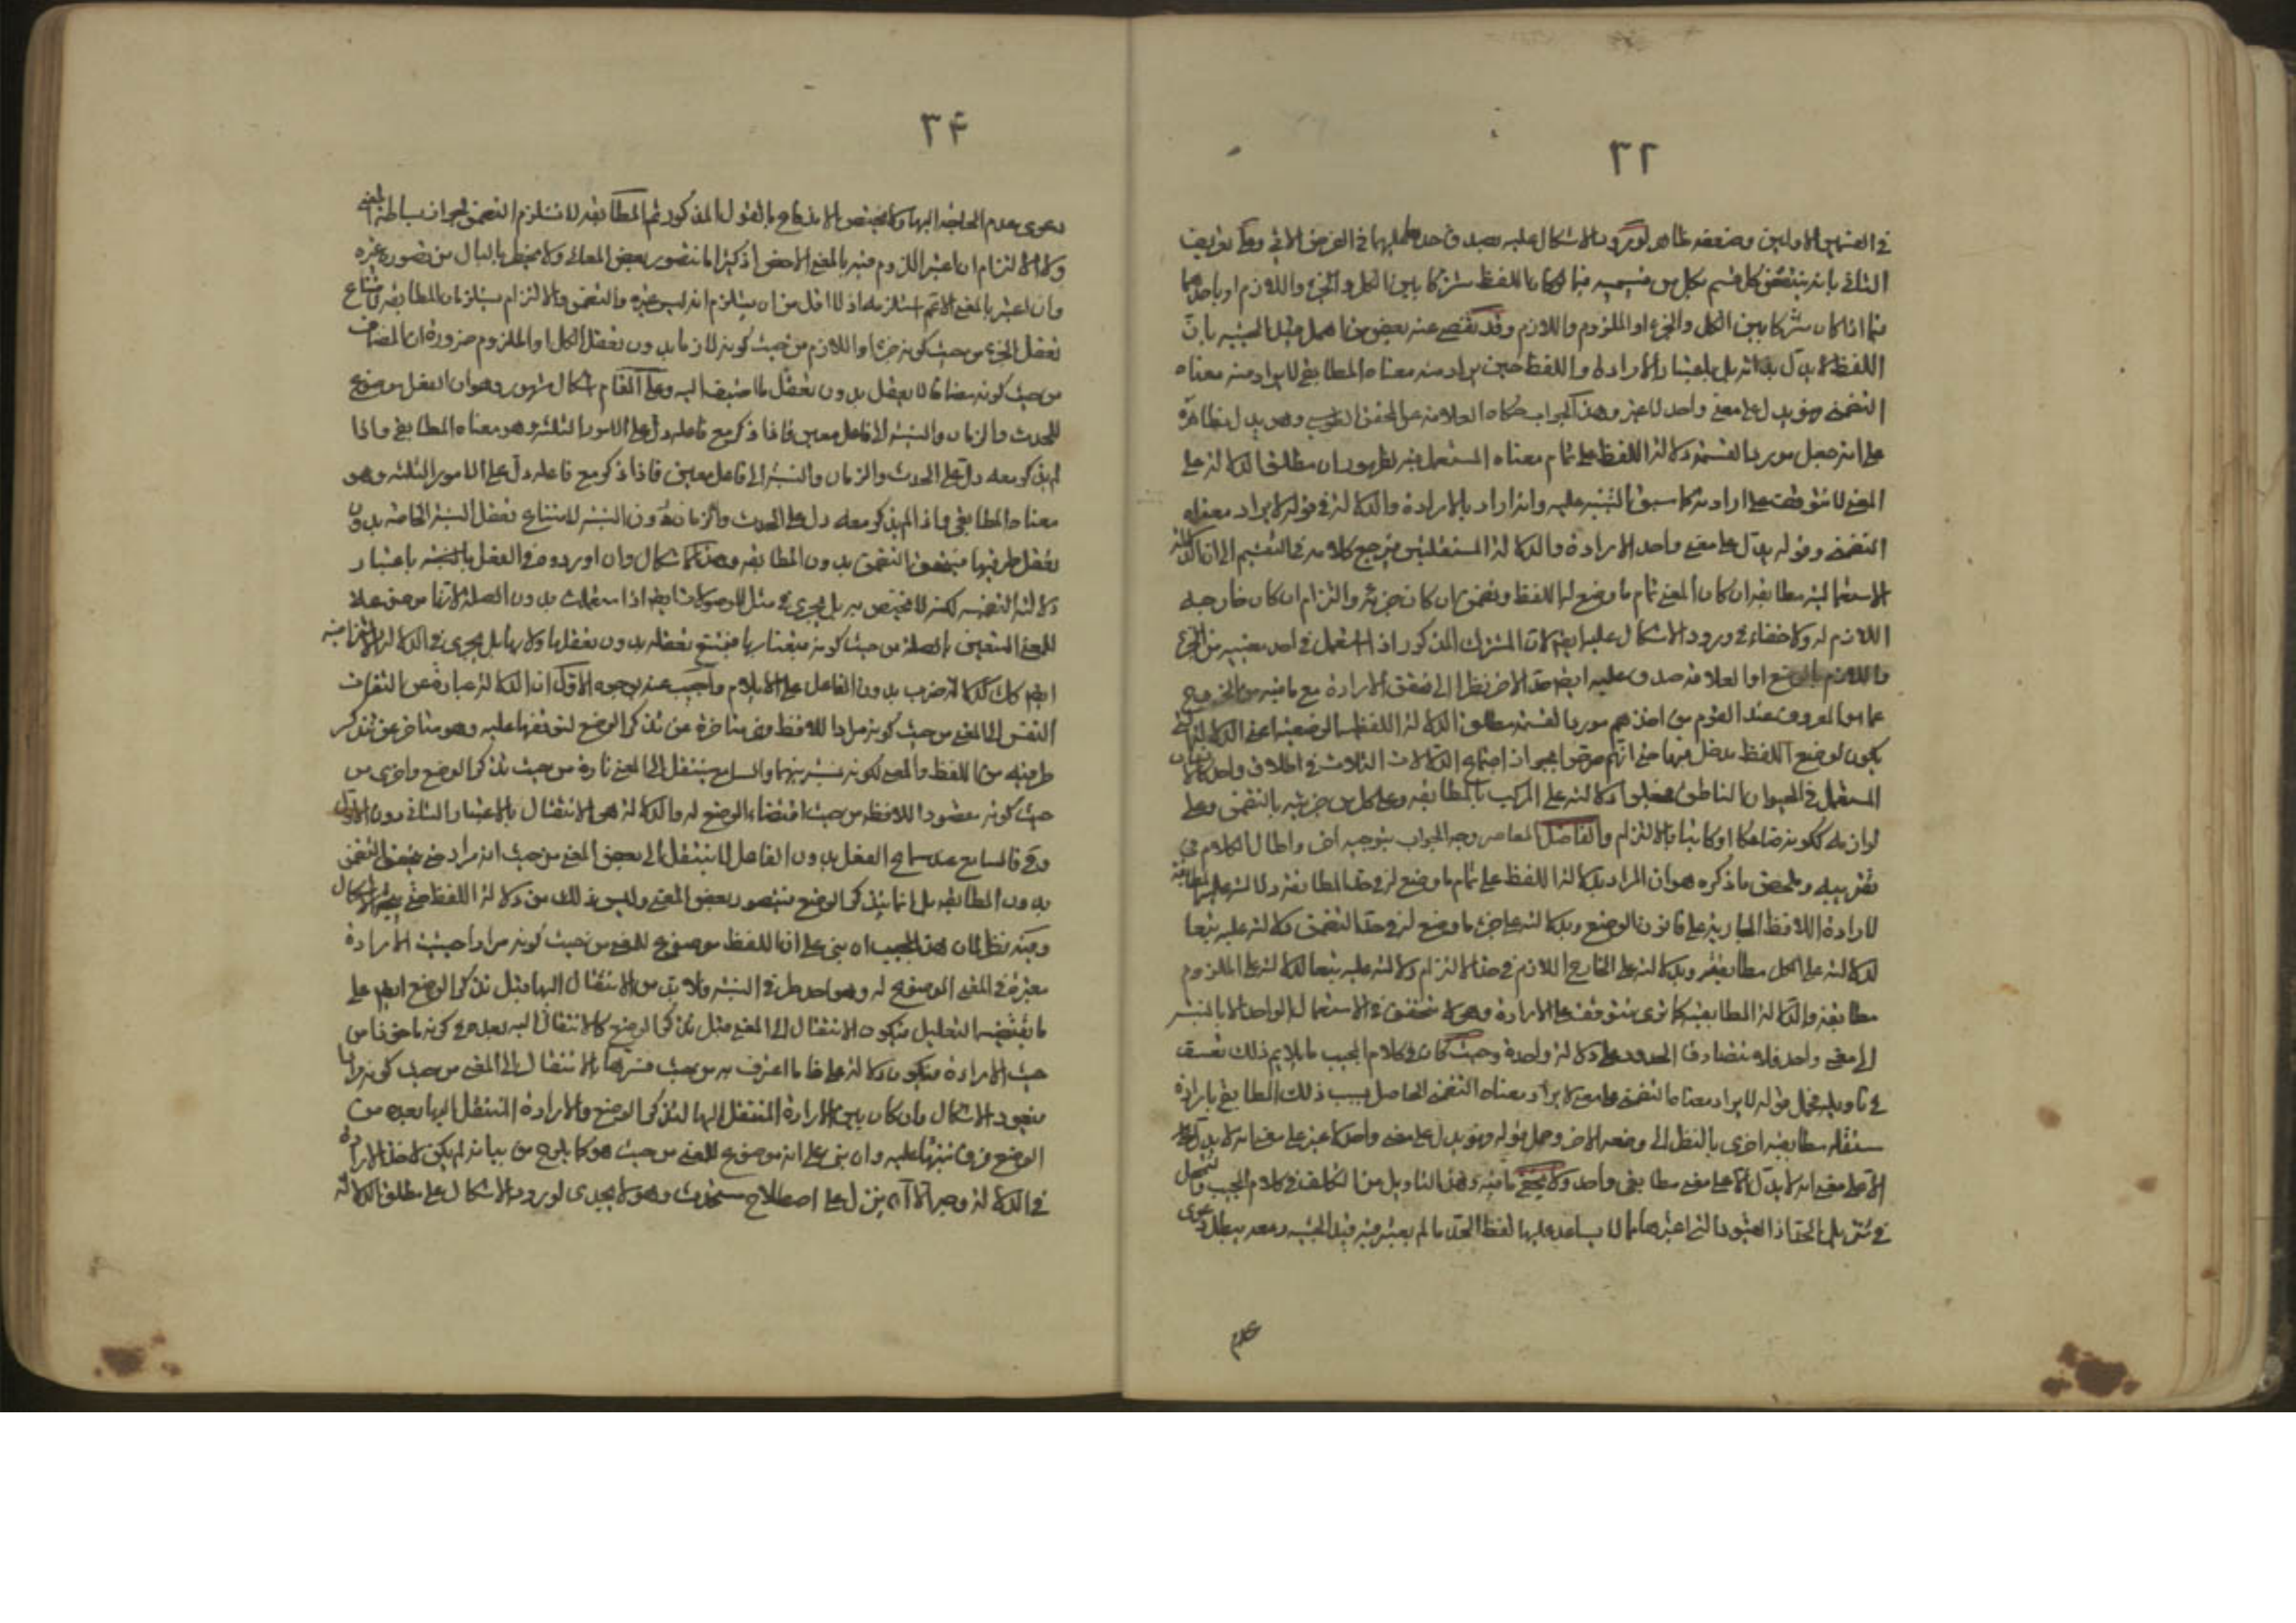 ٣٢
في القسمين الاولين وضعفه ظاهر لورود الاشكال عليه بصدق حد عليهما في الفرض الاتي وعلى تعريف
الثاني بانه ينتقض كل قسم بكل من قسيميه فيما لو كان اللفظ مشتركا بين الكل والجزء واللازم او باحدهما
فيما اذا كان مشتركا بين الكل والجزء او الملزوم واللازم وقد تفصى عنه بعض من اهمل قيد الحيثية بان
اللفظ لا يدل بذاته بل باعتبار الارادة واللفظ حين يراد منه معناه المطابقي لا يراد منه معناه
التضمني فهو يدل على معنى واحد لا غير وهذا الجواب حكاه العلامة عن المحقق الطوسي وهو يدل بظاهره
على انه جعل مورد القسمة دلالة اللفظ على تمام معناه المستعمل فيه لظهور ان مطلق الدلالة على
المعنى لا تتوقف على ارادته كما سبق التنبيه عليه وانه اراد بالارادة والدلالة في قوله لا يراد معناه
التضمني وقوله يدل على معنى واحد الارادة والدلالة المستقلتين فيرجع كلامه في التقسيم الى ان الدلالة
الاستعمالية مطابقة ان كان المعنى تمام ما وضع له اللفظ وتضمن ان كان جزئه والتزام ان كان خارجه
اللازم له ولا خفاء في ورود الاشكال عليه ايضا لان المشترك المذكور اذا استعمل في احد معنييه من الجزء
واللازم بالوضع او العلاقة صدق عليه ايضا حد الاخر نظرا الى تحقق الارادة مع ما فيه من الخروج
عما هو المعروف عند القوم من اخذهم مورد القسمة مطلق الدلالة اللفظية الوضعية اعني الدلالة التي
يكون لوضع اللفظ مدخل فيها حتى انهم صرحوا بجواز اجتماع الدلالات الثلاث في اطلاق واحد كالانسان
المستعمل في الحيوان الناطق فجعلوا دلالته على المركب بالمطابقة وعلى كل من جزئيه بالتضمن وعلى
لوازمه ككونه ضاحكا او كاتبا بالالتزام والفاضل المعاصر وجه الجواب بتوجيه اخر واطال الكلام في
تقريبه وملخص ما ذكره هو ان المراد بدلالة اللفظ على تمام ما وضع له في حد المطابقة دلالته عليه مطابقة
لارادة اللافظ الجارية على قانون الوضع وبدلالته على جزء ما وضع له في حد التضمن دلالته عليه تبعا
لدلالته على الكل مطابقة وبدلالته على الخارج اللازم في حد الالتزام دلالته عليه تبعا لدلالته على الملزوم
مطابقة والدلالة المطابقية كما ترى تتوقف على الارادة وهي لا تتحقق في الاستعمال الواحد الا بالنسبة
الى معنى واحد فلا يتصادق الحدود على دلالة واحدة وحيث كان في كلام المجيب ما لا يلائم ذلك تعسف
في تاويله فحمل قوله لا يراد معناه التضمني على معنى لا يراد معناه التضمني الحاصل بسبب ذلك المطابقي بارادة
مستقلة مطابقية اخرى بالنظر الى وضعه الاخر وحمل قوله فهو يدل على معنى واحد لا غير على معنى انه لا يدل
الا على معنى انه لا يدل الا على معنى مطابقي واحد ولا يخفى ما فيه وفي هذا التاويل من التكلف في كلام المجيب والتمحل
في تنزيل الحد اذ القيود التي اعتبرها مما لا يساعد عليها لفظ الحد ما لم يعتبر فيه قيد الحيثية ومعه يبطل دعوى
٣۴
دعوى عدم الحاجة اليها ولا يختص الاندفاع بالقول المذكور ثم المطابقة لا تستلزم التضمن لجواز بساطة المعنى
ولا الالتزام ان اعتبر اللزوم فيه بالمعنى الاخص اذ كثيرا ما نتصور بعض المعاني ولا يخطر بالبال من تصوره غيره
وان اعتبر بالمعنى الاعم استلزمه اذ لا اقل من ان يستلزم انه ليس غيره والتضمن والالتزام يستلزمان المطابقة لامتناع
تعقل الجزء من حيث كونه جزءا واللازم من حيث كونه لازما بدون تعقل الكل او الملزوم ضرورة ان المضاف
من حيث كونه مضافا لا يعقل بدون تعقل ما اضيف اليه وعلى المقام اشكال مشهور وهو ان الفعل موضوع
للحدث والزمان والنسبة الى فاعل معين فاذا ذكر مع فاعله دل على الامور الثلثة وهو معناه المطابقي واذا
لم يذكر معه دل على الحدث والزمان والنسبة الى فاعل معين فاذا ذكر مع فاعله دل على الامور الثلثة وهو
معناه المطابقي واذا لم يذكر معه دل على الحدث والزمان دون النسبة لامتناع تعقل النسبة الخاصة بدون
تعقل طرفيها فيتحقق التضمن بدون المطابقة وهذا الاشكال وان اوردوه في الفعل بالنسبة باعتبار
دلالته التضمنية لكنه لا يختص به بل يجري في مثل الموصولات ايضا اذا استعملت بدون الصلة لانها موضوعة
للمعنى المتعين بالصلة من حيث كونه متعينا بها فيمتنع تعقله بدون تعقلها ولا بها بل يجري في الدلالة الالتزامية
ايضا كدلالة ضرب بدون الفاعل على الايلام واجيب عنه بوجوه الاول ان الدلالة عبارة عن التفات
النفس الى المعنى من حيث كونه مرادا للافظ وهي متاخرة عن تذكر الوضع لتوقفها عليه وهو متاخر عن تذكر
طرفيه من اللفظ والمعنى لكونه نسبة بينهما والسامع ينتقل الى المعنى تارة من حيث تذكر الوضع واخرى من
حيث كونه مقصودا للافظ من حيث اقتضاء الوضع له والدلالة هي الانتقال بالاعتبار الثاني دون الاول
وحينئذ فالسامع عند سماع الفعل بدون الفاعل لا ينتقل الى بعض المعنى من حيث انه مراد حتى يتحقق التضمن
بدون المطابقة بل انما يتذكر الوضع فيتصور بعض المعنى وليس ذلك من دلالة اللفظ حتى يتجه الاشكال
وفيه نظر لان هذا المجيب ان بنى على ان اللفظ موضوع للمعنى من حيث كونه مرادا حيثية الارادة
معتبرة في المعنى الموضوع له وهو احد طرفي النسبة ولا بد من الانتقال اليها قبل تذكر الوضع ايضا على
ما يقتضيه التعليل فيكون الانتقال الى المعنى قبل تذكر الوضع كالانتقال اليه بعده في كونه ماخوذا من
حيث الارادة فيكون دلالة على ما اعترف به من حيث فسرها بالانتقال الى المعنى من حيث كونه مرادا
فيعود الاشكال وان كان بين الارادة المنتقل اليها لتذكر الوضع والارادة المنتقل اليها بعده من
الوضع فرق نبهنا عليه وان بنى على انه موضوع للمعنى من حيث هو كما يلوح من بيانه لم يكن لاخذ الارادة
في الدلالة وجه الا ان ينزل على اصطلاح مستحدث وهو لا يجدي لورود الاشكال على مطلق الدلالة